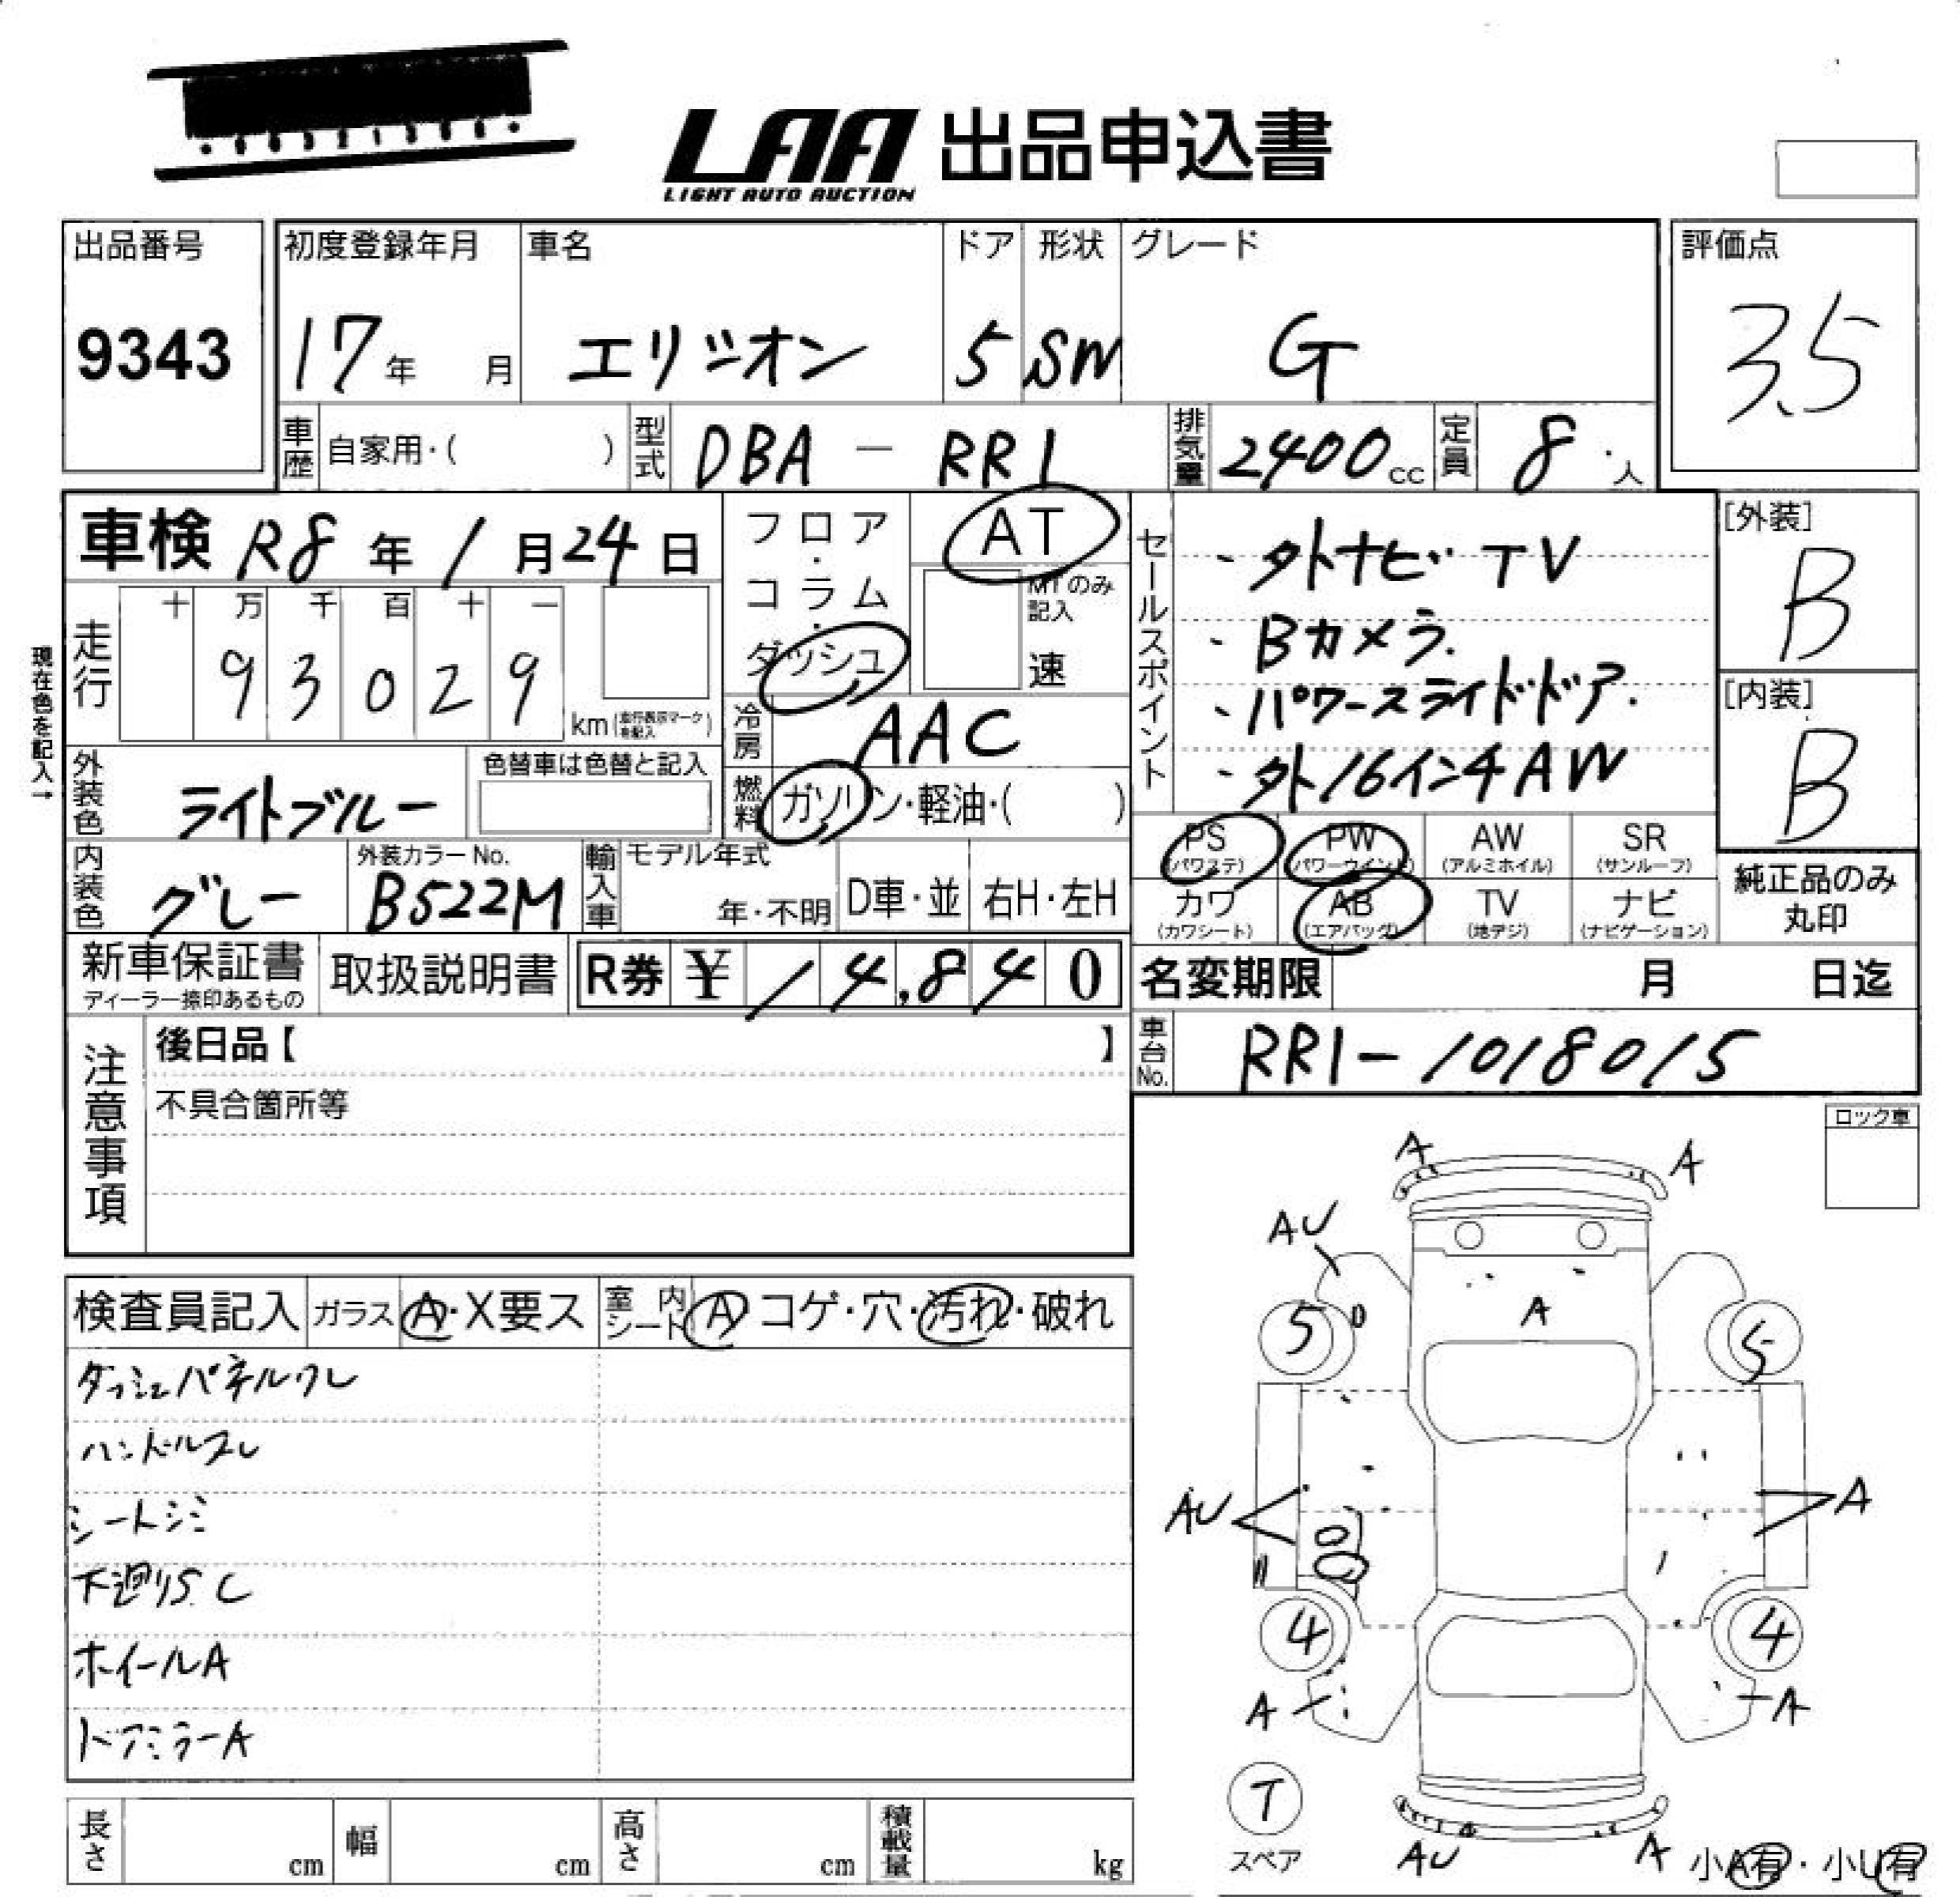 LAA 出品申込書
LIGHT AUTO AUCTION
出品番号
9343
初度登録年月
17年 月
車名
エリシオン
ドア
5
形状
SW
グレード
G
評価点
3.5
車歴 自家用・( )
型式 DBA - RR1
排気量 2400cc
定員 8人
車検 R8年1月24日
フロア・コラム・ダッシュ
AT
MTのみ記入
速
セールスポイント
・外ナビ TV
・Bカメラ.
・パワースライドドア.
・外16インチAW
[外装]
B
[内装]
B
現在色を記入→
走行
十 万 千 百 十 一
9 3 0 2 9
km(走行表示マークを記入)
冷房 AAC
外装色 ライトブルー
色替車は色替と記入
燃料 ガソリン・軽油・( )
PS (パワステ)
PW (パワーウインド)
AW (アルミホイル)
SR (サンルーフ)
カワ (カワシート)
AB (エアバッグ)
TV (地デジ)
ナビ (ナビゲーション)
純正品のみ丸印
内装色 グレー
外装カラーNo.
B522M
輸入車 モデル年式
年・不明
D車・並
右H・左H
新車保証書
ディーラー捺印あるもの
取扱説明書
R券 ¥ 14,840
名変期限 月 日迄
注意事項
後日品【 】
不具合箇所等
車台No. RR1-1018015
ロック車
検査員記入 ガラス A・X要ス 室内シート A コゲ・穴・汚れ・破れ
ハンドルスレ
シートシミ
下廻りS.C
ホイールA
ドアミラーA
A
A
AU
A
5
5
AU
A
4
4
A
A
T
スペア
AU
A
小A有・小U有
長さ cm
幅 cm
高さ cm
積載量 kg